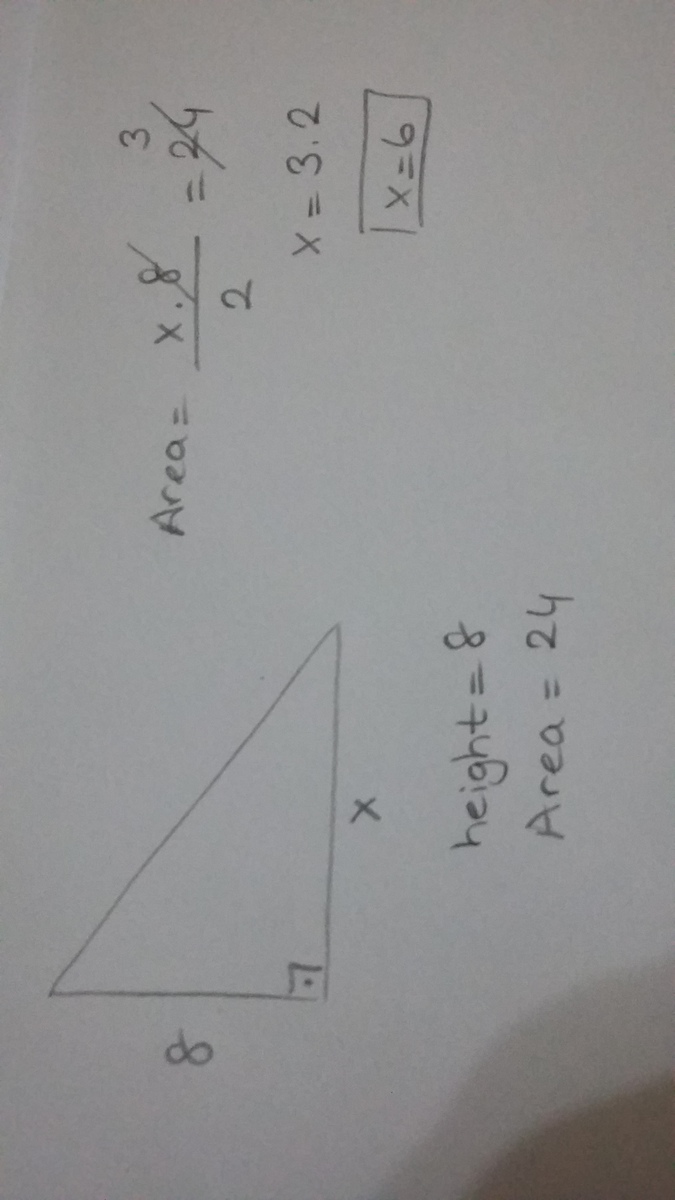 8
x
height = 8
Area = 24
Area = x . 8 / 2 = 24
3
x = 3 . 2
x = 6